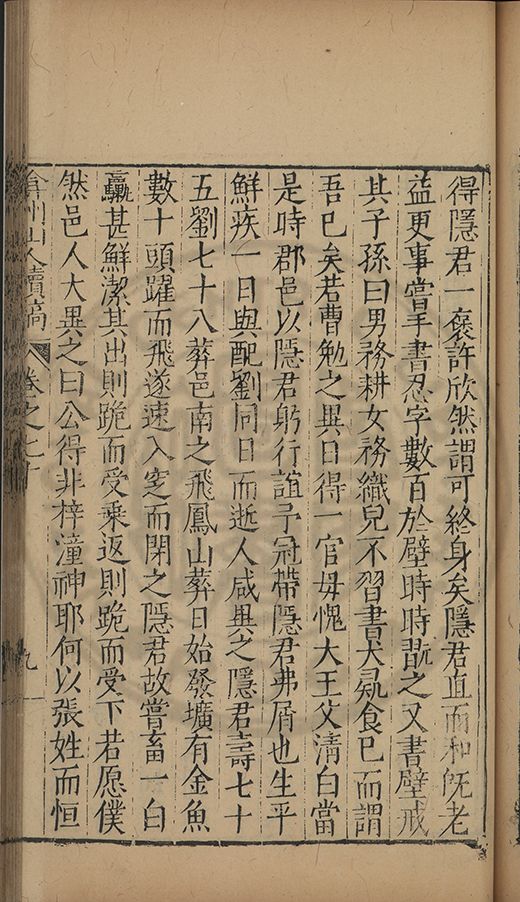 得隱君一褒許欣然謂可終身矣隱君直而和既老
益更事嘗手書忍字數百於壁時時翫之又書壁戒
其子孫曰男務耕女務織兒不習書犬彘食已而謂
吾已矣若曹勉之異日得一官毋愧大王父清白當
是時郡邑以隱君躬行誼予冠帶隱君弗屑也生平
鮮疾一日與配劉同日而逝人咸異之隱君壽七十
五劉七十八葬邑南之飛鳳山葬日始發壙有金魚
數十頭躍而飛遂速入窆而閉之隱君故嘗畜一白
驘甚鮮潔其出則跪而受乘返則跪而受下若愿僕
然邑人大異之曰公得非梓潼神耶何以張姓而恒
弇州山人續稿 卷之七十 九